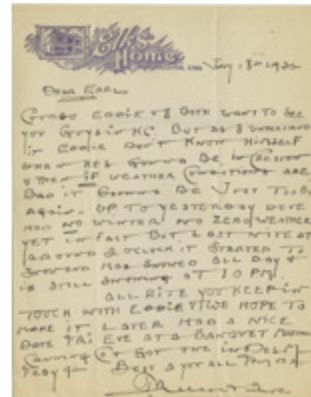 Elks
Home
Dear Earl.
Eddie & I both want to see
you guys in KC. But as I understand
it Eddie don't know himself
when he's gonna be in
& then if weather conditions are
bad it gonna be just too
again. Up to yesterday we've
had no winter, no zero weather
yet in fact but last nite at
around o'clock it started to
snow and has snowed all day &
is still snowing at 10 PM.
All rite you keep in
touch with Eddie & we hope to
make it later. Had a nice
date Fri eve at a banquet
got one in
Feby 9 Best to you all